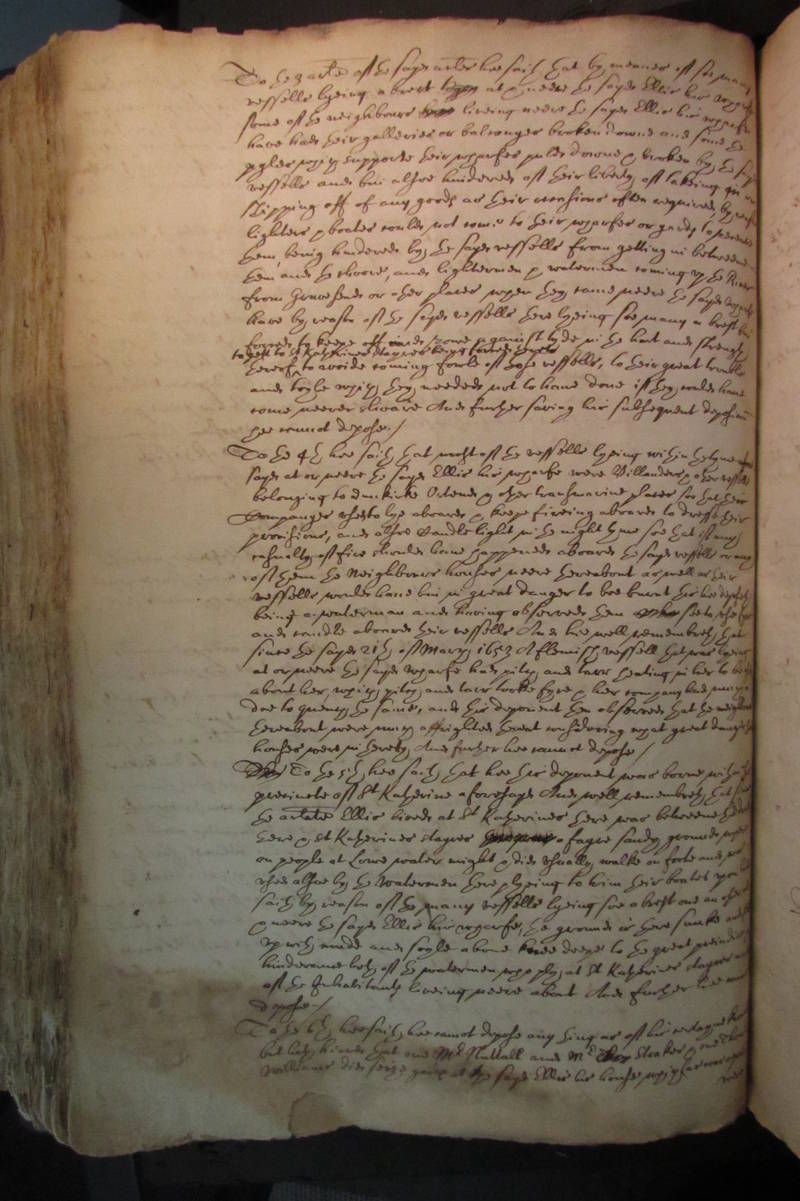 To the 3 article of the sayd articles hee saith that by meanes of soe many
vessells lyeing a brest at or neere the sayd Ellis his wharfe
some of the neighbours liveing neere the sayd Ellis his wharfe
have had their galleries or belconyes broken downe and some the
pyles which supporte their wharfes puld downe & broken by the sayd
vessells and bin alsoe hindered of their liberty of takeing in or
shipping off of any goods as their occasions often required, by reason
lighters & boates could not come to their wharfes or yards to
them, being hindered by the sayd vessells from getting in betweene
them and the shoare, and lightermen & watermen coming up the River
from Gravesend or other places when they came neere the sayd wharfe
have by reason of the sayd vessells there lyeing soe many a brest bin
forced to keepe off and rowe against tyde in the hart and strength
to gett to St Katherines stayres
thereof, to avoide coming fowle of those vessells, to their great trouble
and toyle which they needed not to have done if they could have
come neerer shoare And further saving his subsequent deposition
hee cannot depose./
To the 4th hee saith that most of the vessells lyeing within the tyme
sayd at or neere the sayd Ellis his wharfe were Billanders & other vessells
belonging to dunkirke Ostend & other transmarine places soe that their
Companyes used to lye aboard & keepe fireing aboard to dresse their
provisions, and alsoe Candle light in the night tyme soe that if any
casualty of fire should have happened aboard the sayd vessells or any
of them the Neighbours houses neere thereabout as well as their
vessells would have bin in great danger to bee burnt this hee
being a waterman and having observed them soe to use fire
and candle aboard their vessells And hee well remembreth that
since the sayd 21th of March 1653 A flemish vessell that was lyeing
at or neere the sayd wharfe had pitch and tarr heating in her to
about her, which pitch and tarr tooke fyre & her company had much
doe to quench the same, and this deponent then observed that the neighbours
thereabout were much affrighted thereat considering what great danger their
houses were in thereby And further hee cannot depose/
To the 5th hee saith that hee this deponent was borne within the
precincts of St Katherine aforesayd And well remembreth that
the articulate Ellis lived at St Katherines there was betweene
there & St Katherines stayres a fayre sandy ground
on people at Lowe water might & did usually walke on foote and
used alsoe by the Watermen there plyeing to trim their boates
saith by reason of the many vessells lyeing soe a brest one an other
& neere the sayd Ellis his wharfe, the ground is there sunke and
up with mudd and soyle above knee deepe to the great prejudice
hinderance both of the watermen who ply at St Katherines stayres and
of the Inhabitants liveing neere about And further hee cannot
depose/
To the 6th hee saith, hee cannot depose any thing as of his certayne
but hath heard that one Mr Nuttall and Mr Stoaker & one
Williams did seize at the sayd Ellis his house